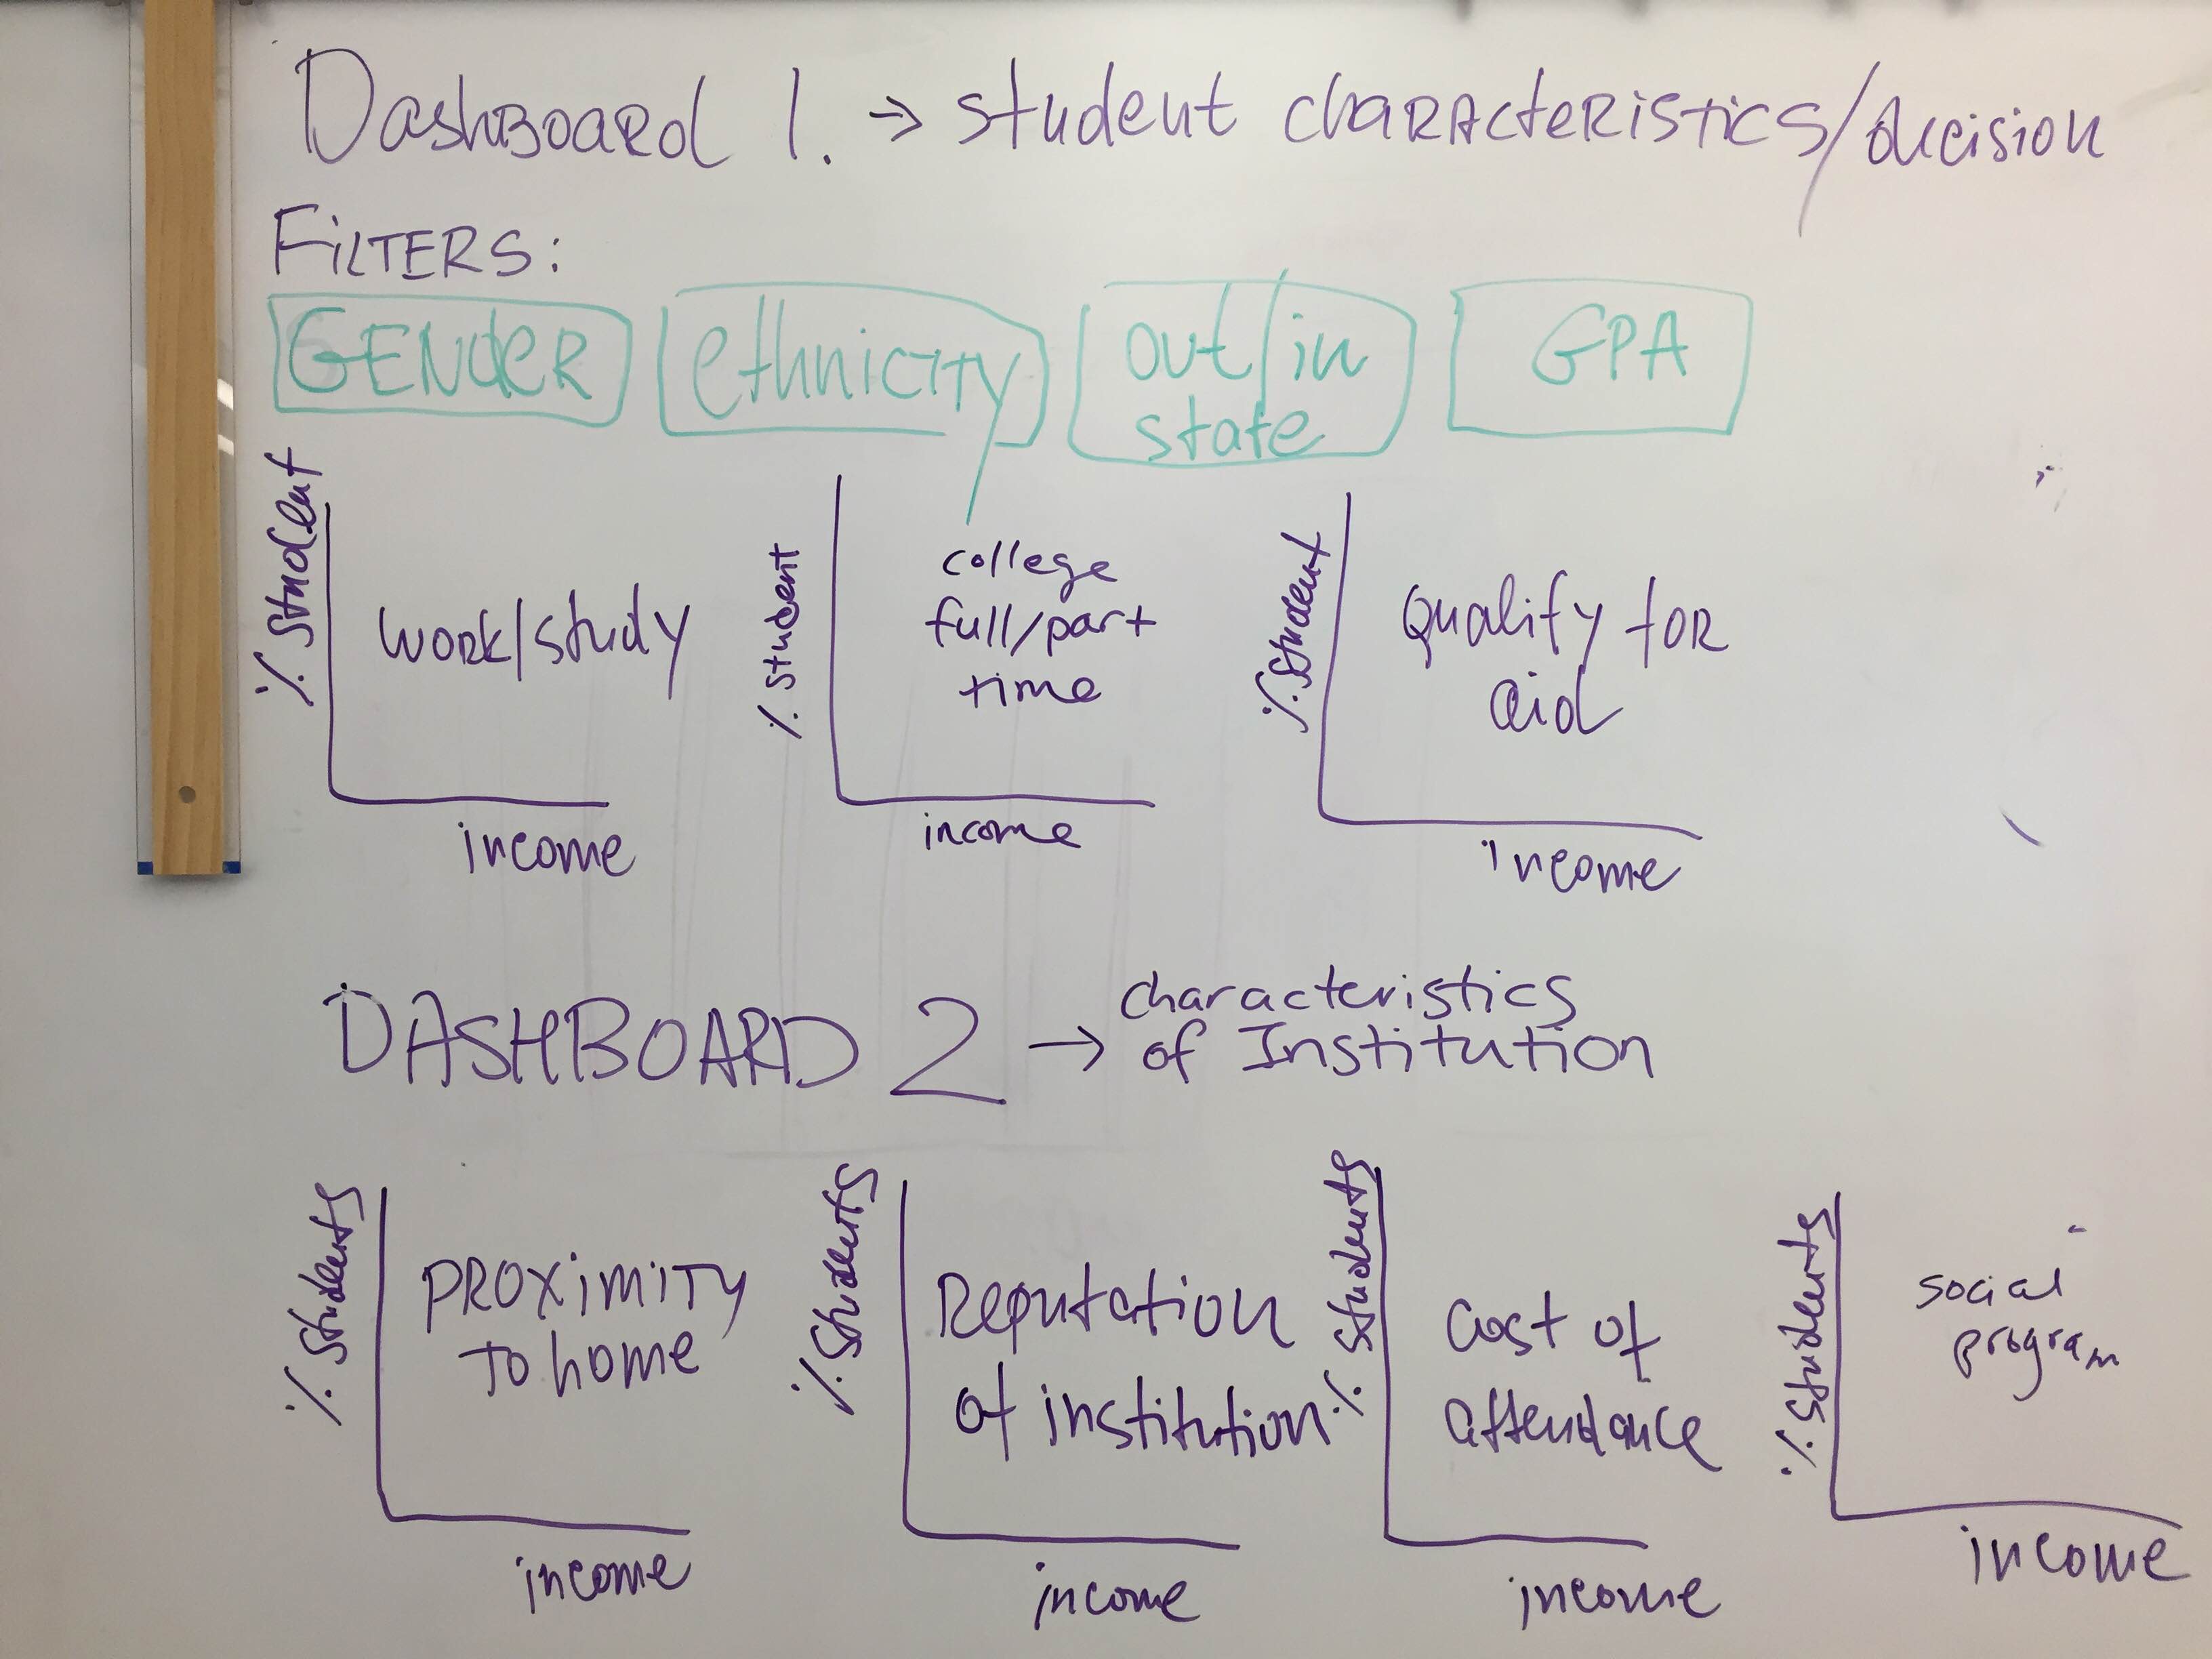 DashBoard 1. → student characteristics/decision
FiLTERS:
GENdeR
ethnicity
out/in
state
GPA
% Student
work/study
income
% student
college
full/part
time
income
% Student
Qualify for
aid
income
DASHBOARD 2 → characteristics
of Institution
% Students
PROXimiTY
To home
income
% Students
Reputation
of institution
income
% Students
Cost of
attendance
income
% Students
social
program
income